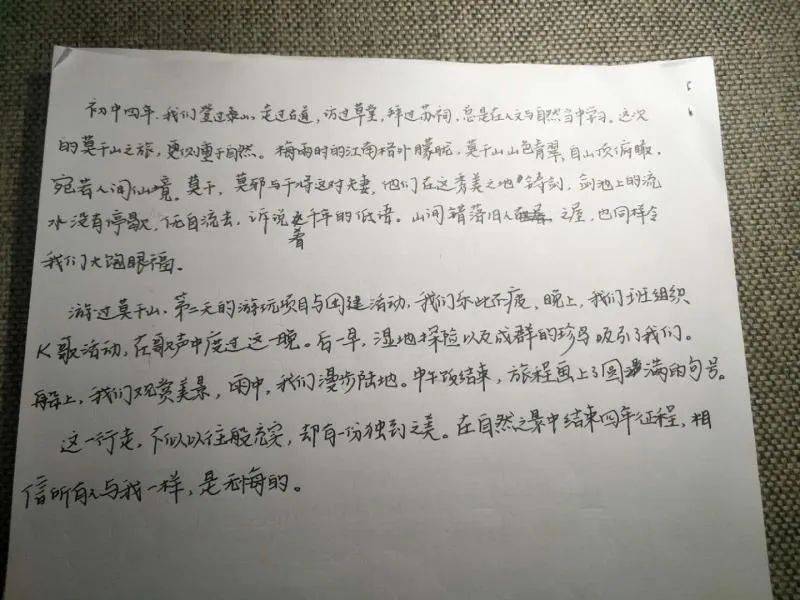 初中四年，我们登过泰山，走过古道，访过草堂，拜过苏祠，总是在人文与自然当中学习。这次
的莫干山之旅，更侧重于自然。梅雨时的江南枝叶朦胧，莫干山山色青翠，自山顶俯瞰，
宛若人间仙境。莫干，莫邪与干将这对夫妻，他们在这秀美之地铸剑，剑池上的流
水没有停歇，任自流去，诉说着千年的低语。山间错落旧人之屋，也同样令
我们大饱眼福。
游过莫干山，第二天的游玩项目与团建活动，我们乐此不疲，晚上，我们班组织
K歌活动，在歌声中度过这一晚。后一早，湿地探险以及成群的珍鸟吸引了我们。
船上，我们观赏美景，雨中，我们漫步陆地。中午饭结束，旅程画上了圆满的句号。
这一行走，不似以往般充实，却有一份独到之美。在自然之景中结束四年征程，相
信所有人与我一样，是无悔的。